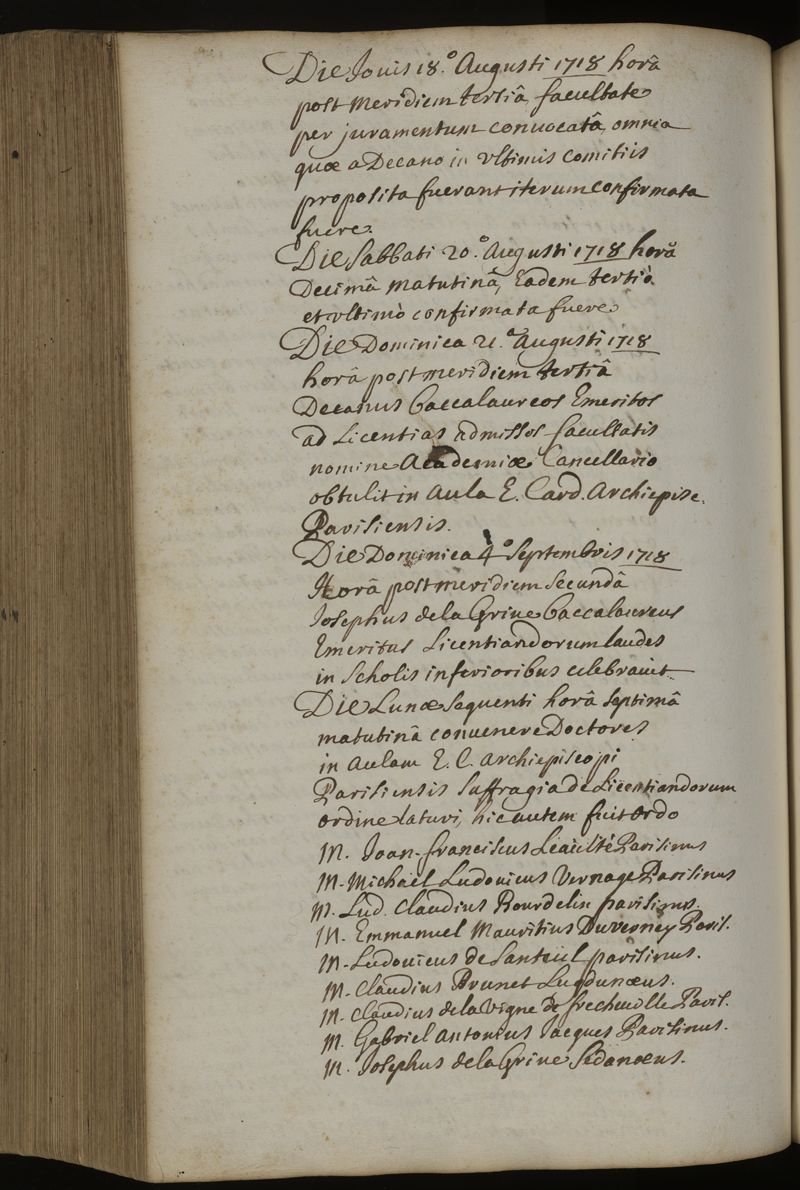 Die Jouis 18.° Augusti 1718 horâ
post meridiem tertiâ, facultate
per juramentum conuocatâ, omnia
quæ a Decano in vltimis comitiis
proposita fuerant iterum confirmata
fuere.
Die Sabbati 20.° Augusti 1718 horâ
Decimâ matutinâ, Eadem tertiò
et vltimò confirmata fuere.
Die Dominica 21.° Augusti 1718
horâ post meridiem tertiâ
Decanus Baccalaureos Emeritos
ad Licentias admissos facultatis
nomine Academiæ Cancellario
obtulit in Aula E. Card. Archiepisc.
Parisiensis.
Die Dominica 4.° Septembris 1718
Horâ post meridiem secundâ
Josephus de la Griue Baccalaureus
Emeritus Licentiandorum laudes
in Scholis inferioribus celebrauit
Die Lunæ Sequenti horâ septimâ
matutinâ conuenere Doctores
in Aulam E. C. Archiepiscopi
Parisiensis suffragia de Licentiandorum
ordine laturi, hic autem fuit ordo
M. Joan-franciscus Leaulté Parisinus
M. Michael Ludouicus Vernage Parisinus
M. Lud. Claudius Bourdelin parisinus.
M. Emmanuel Mauritius Duverney Paris.
M. Ludouicus de Santeul parisinus.
M. Claudius Brunet Lugdunæus.
M. Claudius de la Vigne de frecheuille Paris.
M. Gabriel Antonius Jacques Parisinus.
M. Josephus de la Griue Sedanæus.